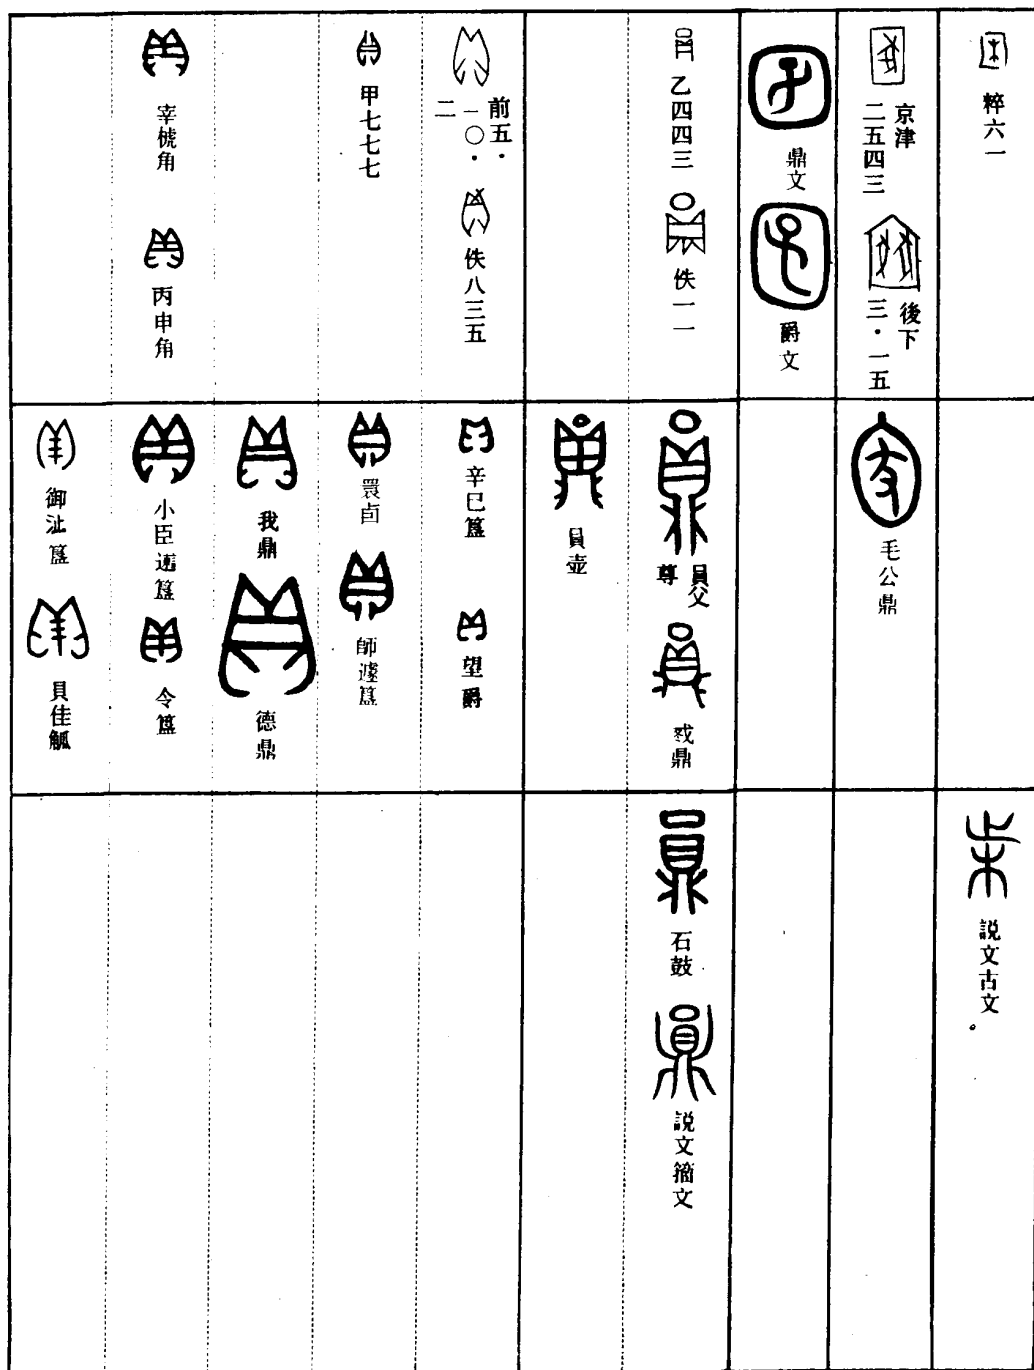 粹六一
京津
二五四三
後下
三·一五
鼎文
爵文
乙四四三
佚一一
前五·
一〇·
二
佚八三五
甲七七七
宰椃角
丙申角
毛公鼎
員父
尊
戜鼎
員壺
辛巳簋
望爵
睘卣
師遽簋
我鼎
德鼎
小臣逋簋
令簋
御沚簋
貝隹觚
説文古文。
石鼓
説文籀文